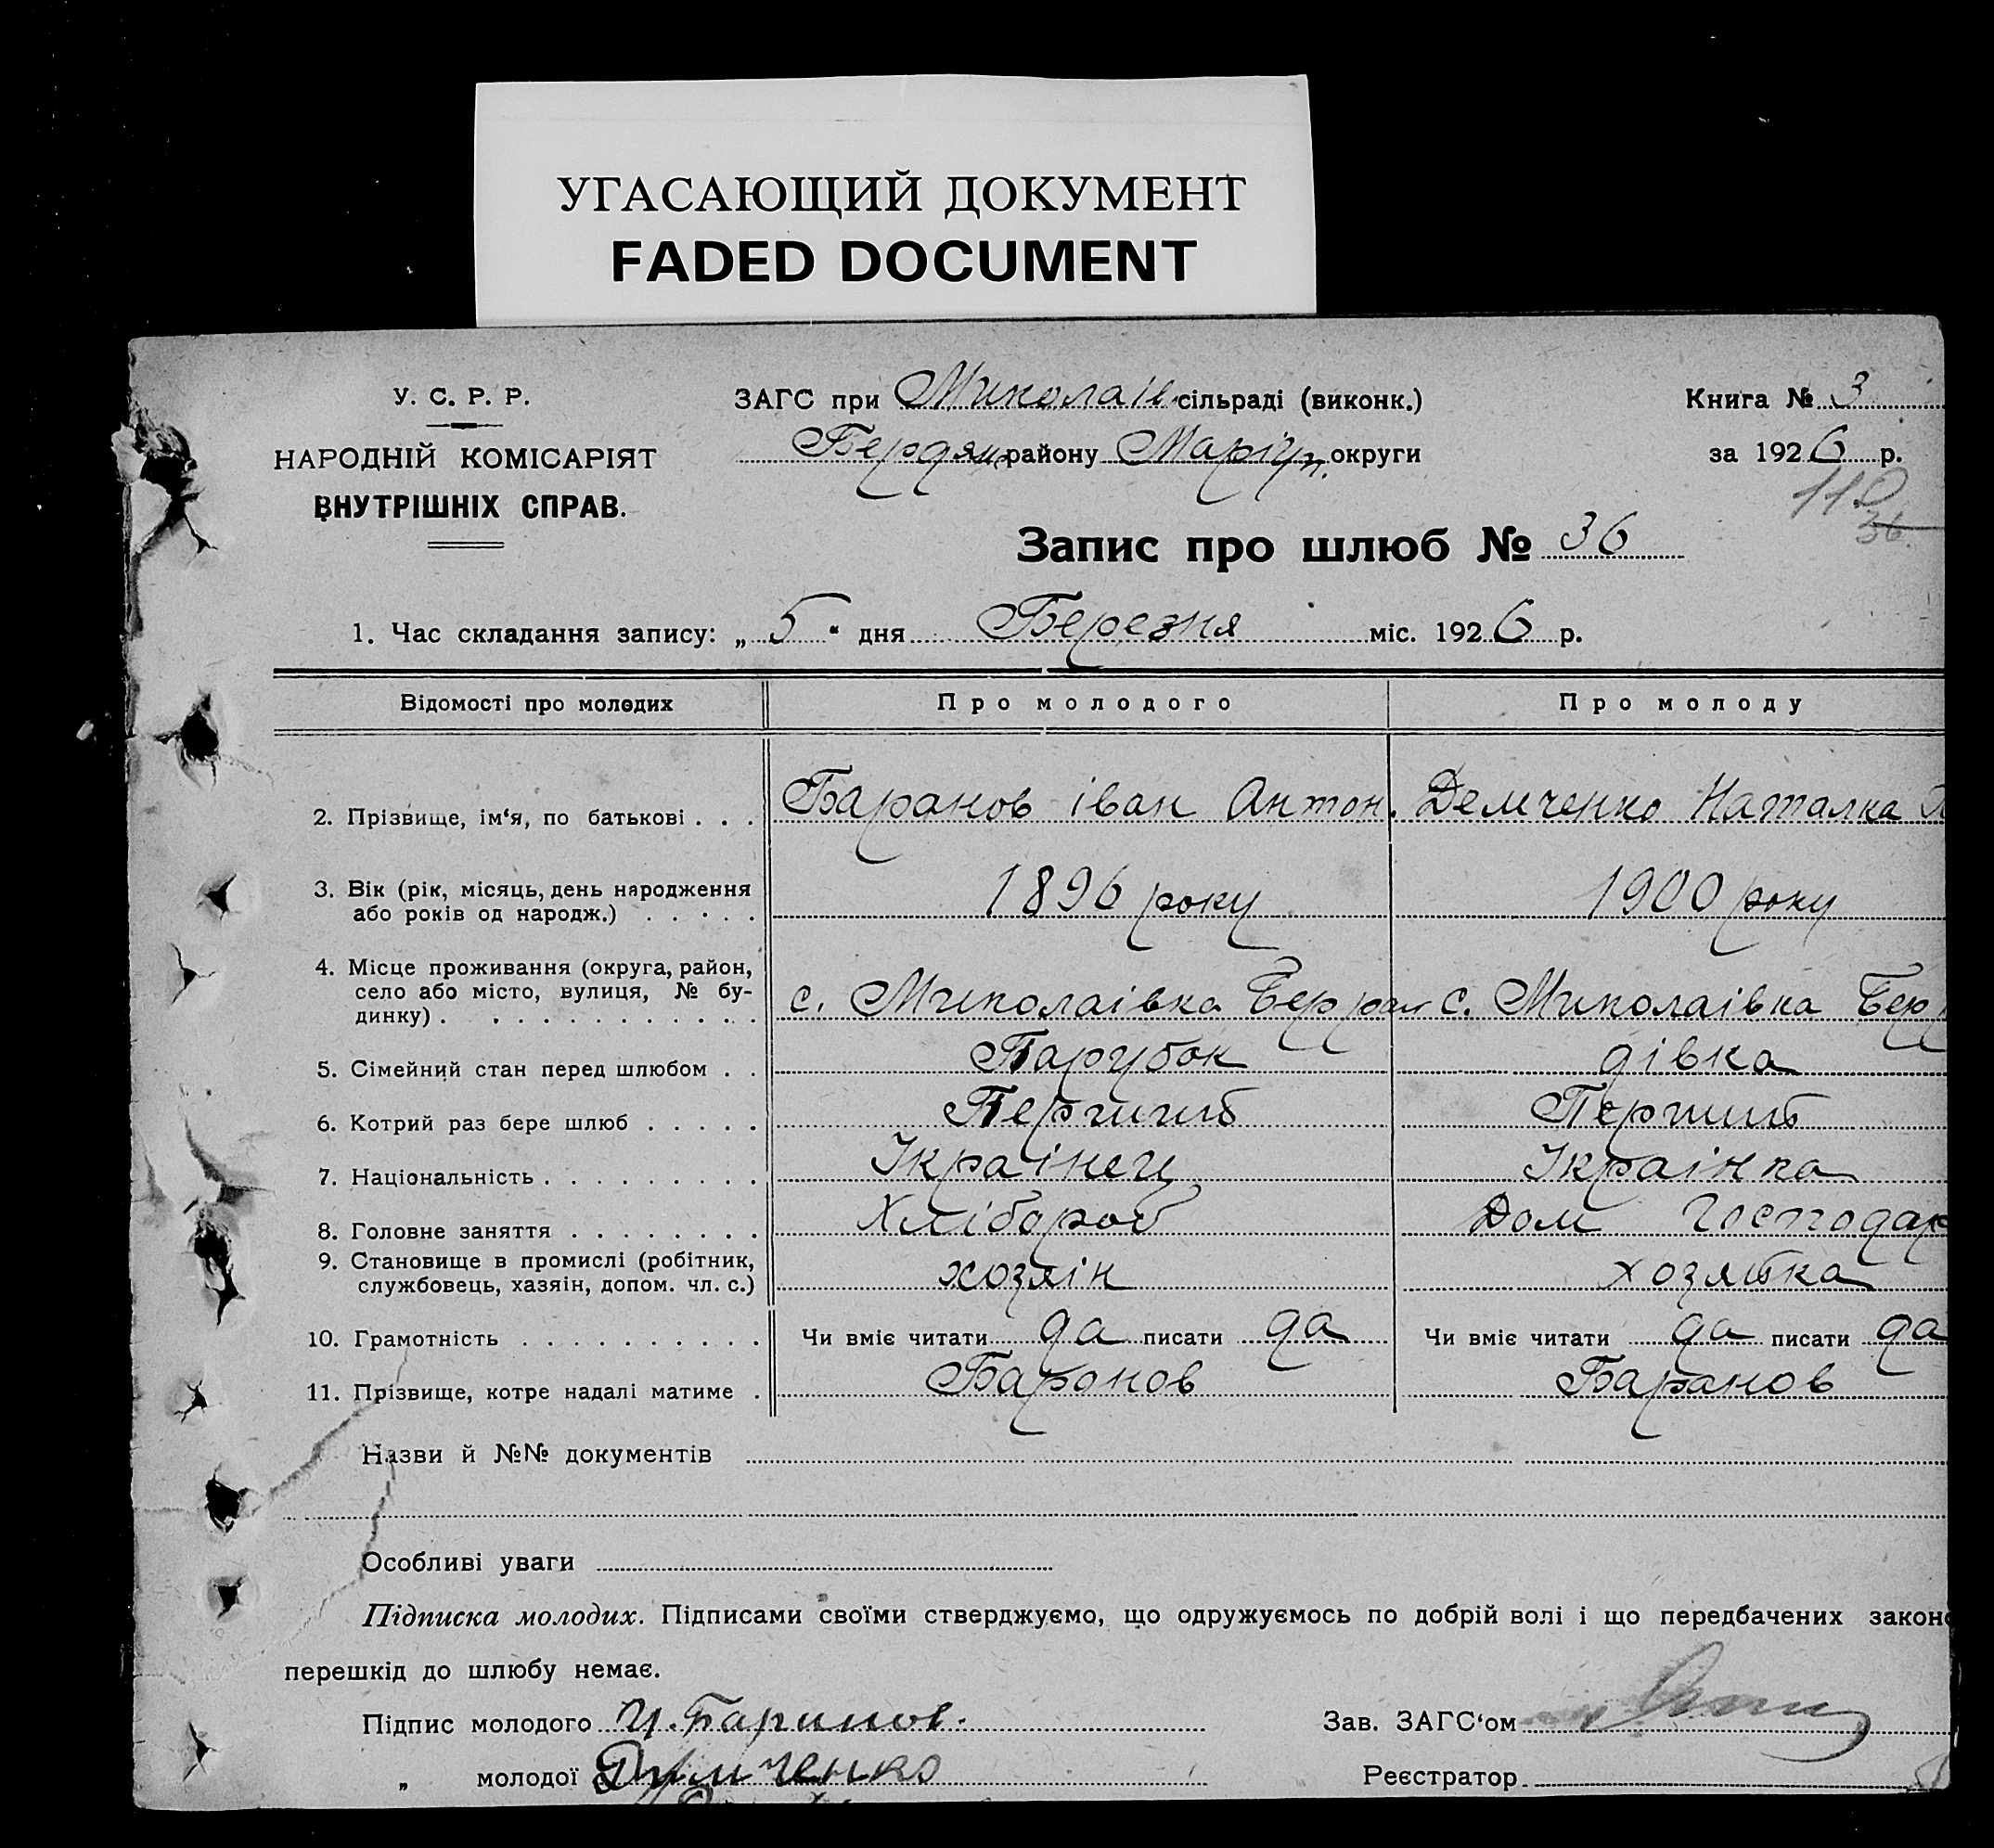 УГАСАЮЩИЙ ДОКУМЕНТ
FADED DOCUMENT
У. С. Р. Р.
НАРОДНІЙ КОМІСАРІЯТ
ВНУТРІШНІХ СПРАВ.
ЗАГС при Миколаів. сільраді (виконк.)
Бердян. району Маріуп. округи
Книга № 3
за 1926 р.
110
36.
Запис про шлюб № 36
1. Час складання запису: „ 5 “ дня Березня міс. 1926 р.
Відомості про молодих Про молодого Про молоду
2. Прізвище, ім‘я, по батькові . . . Баранов іван Антон. Демченко Наталка
3. Вік (рік, місяць, день народження
або років од народж.) . . . . . 1896 року 1900 року
4. Місце проживання (округа, район,
село або місто, вулиця, № бу-
динку) . . . . . . . . . . . . с. Миколаівка Бер рай с. Миколаівка Бер
5. Сімейний стан перед шлюбом . . Парубок дівка
6. Котрий раз бере шлюб . . . . . Перший Перший
7. Національність . . . . . . . . . Украінец Украінка
8. Головне заняття . . . . . . . . Хлібороб Дом Господар
9. Становище в промислі (робітник,
службовець, хазяін, допом. чл. с.) хозяін хозяйка
10. Грамотність . . . . . . . . . . Чи вміє читати да писати да Чи вміє читати да писати да
11. Прізвище, котре надалі матиме . Баронов Баранов
Назви й №№ документів
Особливі уваги
Підписка молодих. Підписами своїми стверджуємо, що одружуємось по добрій волі і що передбачених законо
перешкід до шлюбу немає.
Підпис молодого И. Баринов. Зав. ЗАГС‘ом
„ молодої Димченко Реєстратор